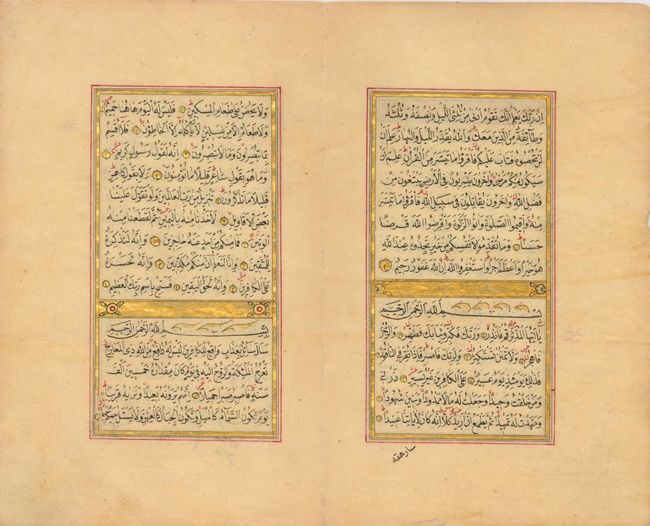 ان ربك يعلم انك تقوم ادنى من ثلثى الليل ونصفه وثلثه
وطائفة من الذين معك والله يقدر الليل والنهار علم ان
لن تحصوه فتاب عليكم فاقرؤا ما تيسر من القرآن علم ان
سيكون منكم مرضى وآخرون يضربون فى الارض يبتغون من
فضل الله وآخرون يقاتلون فى سبيل الله فاقرؤا ما تيسر
منه واقيموا الصلوة وآتوا الزكوة واقرضوا الله قرضا
حسنا وما تقدموا لانفسكم من خير تجدوه عند الله
هو خيرا واعظم اجرا واستغفروا الله ان الله غفور رحيم
بسم الله الرحمن الرحيم
يا ايها المدثر قم فانذر وربك فكبر وثيابك فطهر والرجز
فاهجر ولا تمنن تستكثر ولربك فاصبر فاذا نقر فى الناقور
فذلك يومئذ يوم عسير على الكافرين غير يسير ذرنى
ومن خلقت وحيدا وجعلت له مالا ممدودا وبنين شهودا
ومهدت له تمهيدا ثم يطمع ان ازيد كلا انه كان لآياتنا عنيدا
سارهقه
ولا يحض على طعام المسكين فليس له اليوم هاهنا حميم
ولا طعام الا من غسلين لا ياكله الا الخاطؤن فلا اقسم
بما تبصرون وما لا تبصرون انه لقول رسول كريم
وما هو بقول شاعر قليلا ما تؤمنون ولا بقول كاهن
قليلا ما تذكرون تنزيل من رب العالمين ولو تقول علينا
بعض الاقاويل لاخذنا منه باليمين ثم لقطعنا منه
الوتين فما منكم من احد عنه حاجزين وانه لتذكرة
للمتقين وانا لنعلم ان منكم مكذبين وانه لحسرة
على الكافرين وانه لحق اليقين فسبح باسم ربك العظيم
بسم الله الرحمن الرحيم
سال سائل بعذاب واقع للكافرين ليس له دافع من الله ذى المعارج
تعرج الملئكة والروح اليه فى يوم كان مقداره خمسين الف
سنة فاصبر صبرا جميلا انهم يرونه بعيدا ونريه قريبا
يوم تكون السماء كالمهل وتكون الجبال كالعهن ولا يسئل حميم